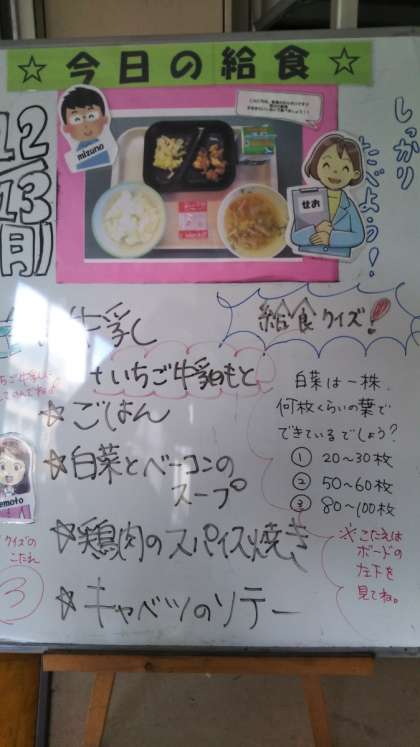 ☆今日の給食☆
12/13(月)
mizuno
せお
しっかり
たべよう!
牛乳
+いちご牛乳のもと
☆ごはん
☆白菜とベーコンの
スープ
☆鶏肉のスパイス焼き
☆キャベツのソテー
給食クイズ!
白菜は一株、
何枚くらいの葉で
できているでしょう?
① 20〜30枚
② 50〜60枚
③ 80〜100枚
※こたえは
ボードの
左下を
見てね。
emoto
クイズの
こたえ
③